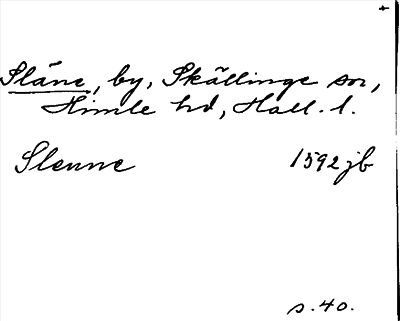 Släne, by, Skällinge sn,
Himle hd, Hall. l.
Slenne 1592 jb
s. 40.